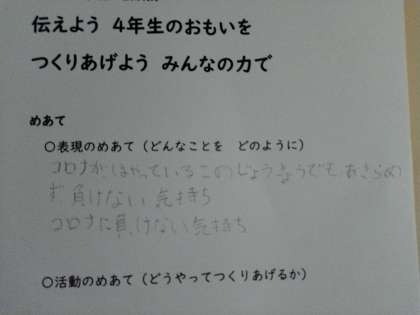 伝えよう 4年生のおもいを
つくりあげよう みんなの力で
めあて
○表現のめあて(どんなことを どのように)
コロナが、はやっているこのじょうきょうでも、あきらめ
ず、負けない気持ち
コロナに負けない気持ち
○活動のめあて(どうやってつくりあげるか)